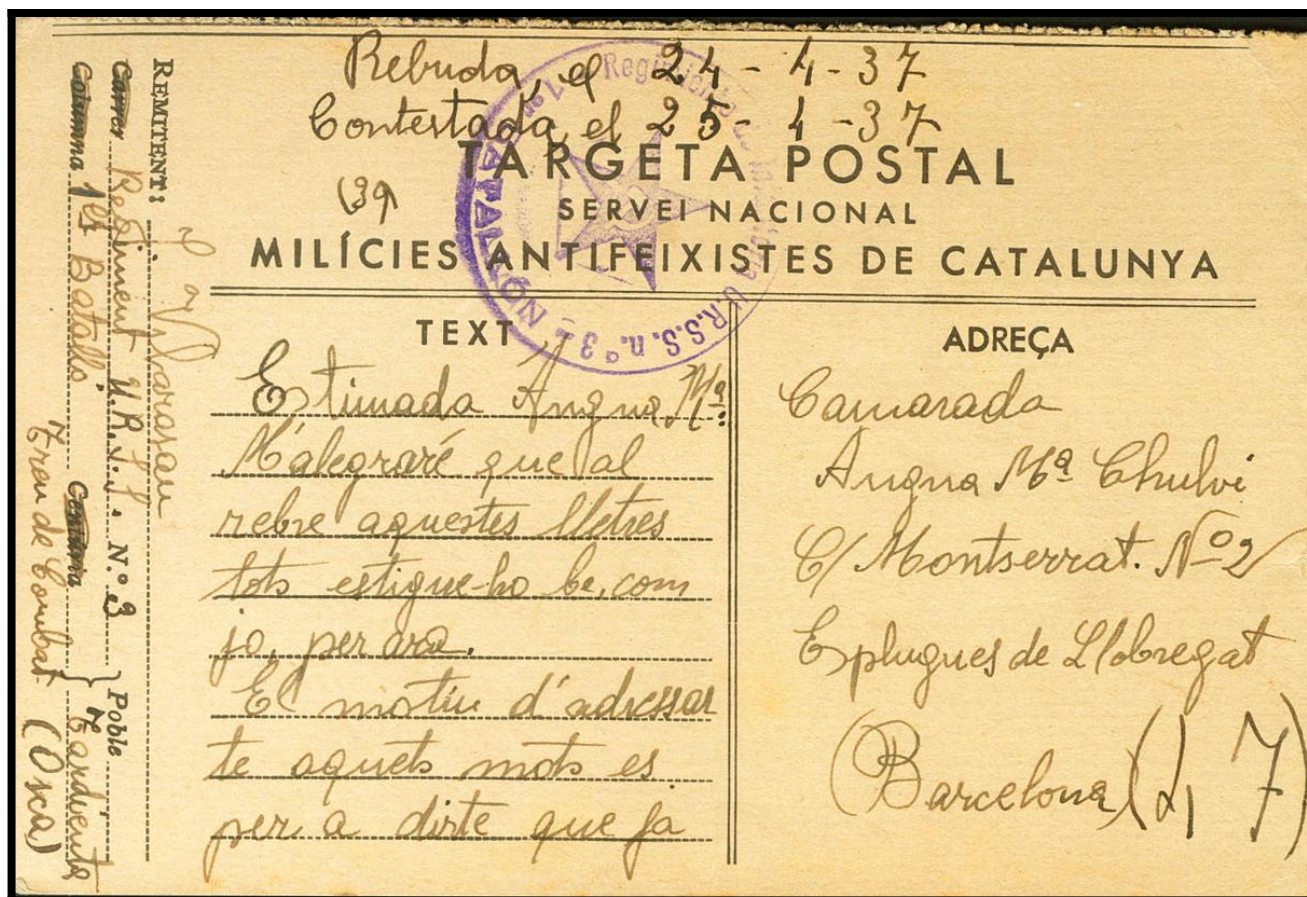 Rebuda, el 24-4-37
Contestada, el 25-4-37
TARGETA POSTAL
SERVEI NACIONAL
MILÍCIES ANTIFEIXISTES DE CATALUNYA
1er BATALLÓN
U.R.S.S. n.º 3
REMITENT:
Carrer Regiment U.R.S.S. N.º 3 Poble Tardienta
Columna 1er Batalló Centúria (Osca)
Tren de Combat
TEXT
Estimada Angna Mª:
M'alegraré que al
rebre aquestes lletres
tots estigue-ho be, com
jo, per ara.
El motiu d'adressar
te aquets mots es
per a dirte que ja
ADREÇA
Camarada
Angna Mª Chulvi
C/ Montserrat. Nº 2
Esplugues de Llobregat
(Barcelona)